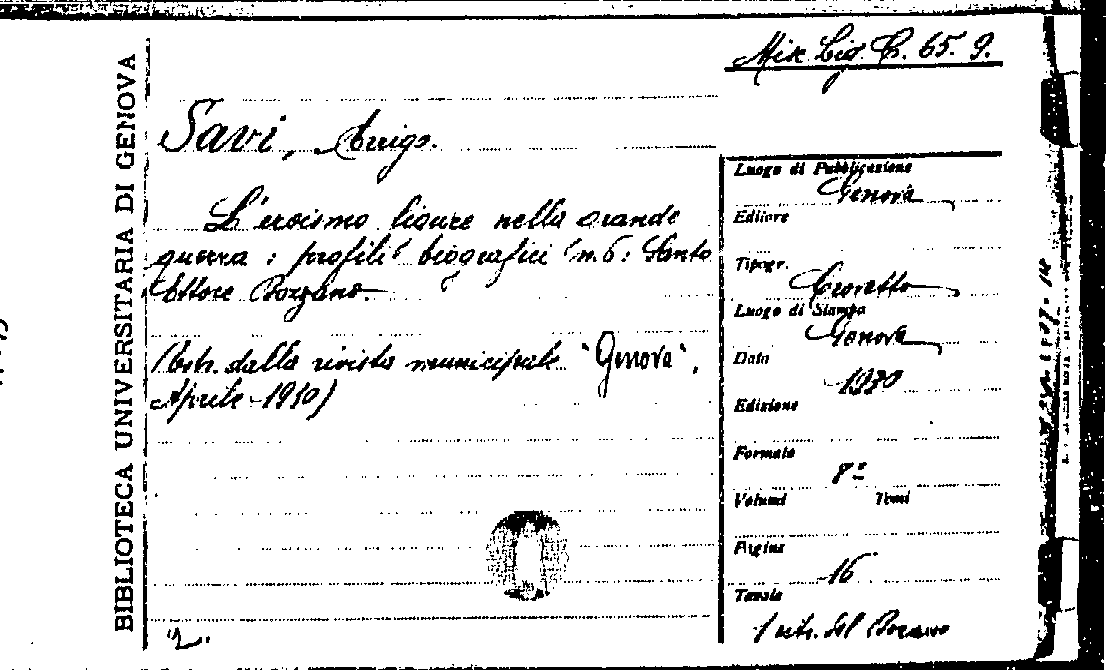 BIBLIOTECA UNIVERSITARIA DI GENOVA
Misc. Lig. B. 65. 9.
Savi, Arrigo.
L'eroismo ligure nella grande
guerra : profili biografici (n. 6 : Santo
Ettore Bozzano.
(Estr. dalla rivista municipale "Genova",
Aprile 1930)
2.
Luogo di Pubblicazione
Genova
Editore
Tipogr.
Luogo di Stampa
Genova
Data
1930
Edizione
Formato
8º
Volumi Tomi
Pagine
16
Tavole
1 ritr. del Bozzano